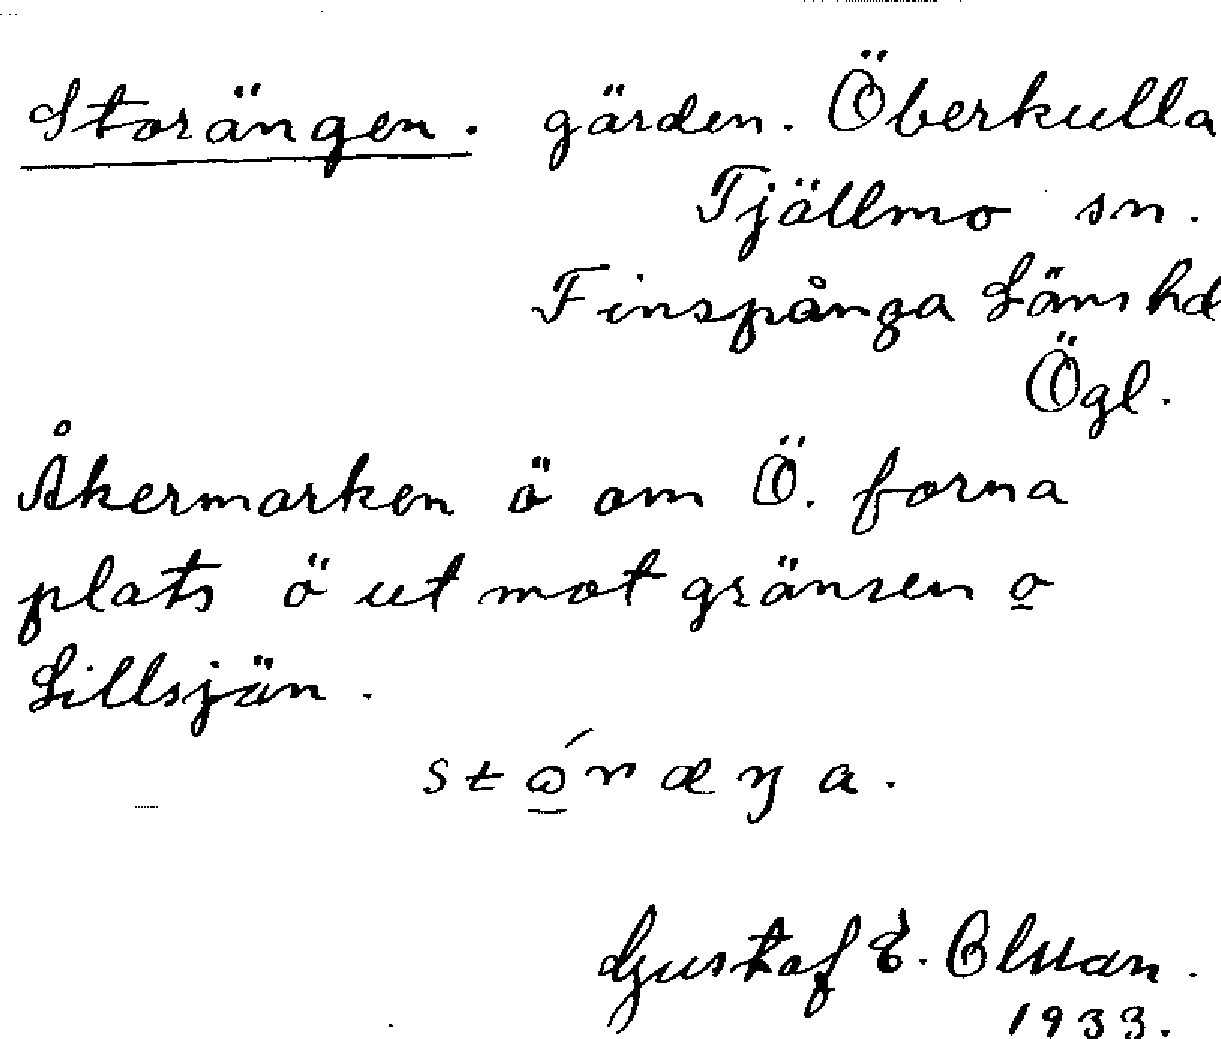 Storängen. gärden. Öberkulla
Tjällmo sn.
Finspånga Läns hd
Ögl.
Åkermarken ö om Ö. forna
plats ö ut mot gränsen o
Lillsjön.
stǫ́ræŋa.
Gustaf E. Olsson.
1933.